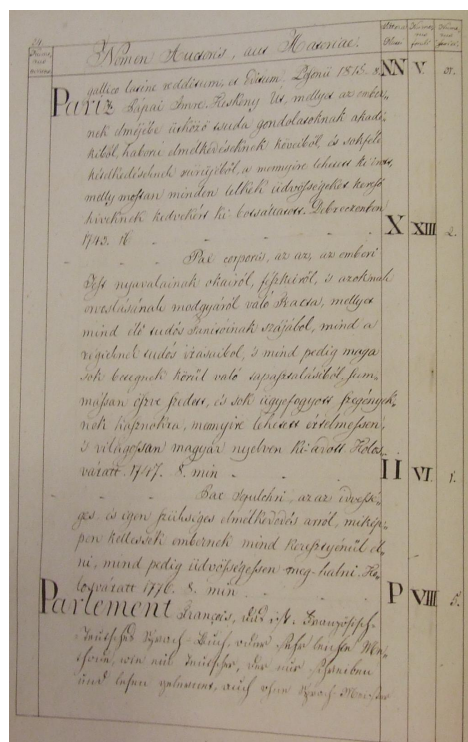 Nomen Auctoris, aut Materiae.
gallico latine redditum, et Editum, Posonii 1815. 8.
NN V.
Pariz Pápai Imre. Keskeny Ut, mellyet az ember-
nek elméjébe ütköző tsuda gondolasoknak akadé-
kiból, háború elmélkedéseknek köveiböl, és sokféle
kételkedéseknek a mennyire lehetett ki irtott,
melly mostan minden lelkek üdvösségeket kereső
híveknek kedvekért ki botsáttatott. Debreczenben
X XIII 2.
1743. 16
Pax corporis, az az, az emberi
Test nyavalyáinak okairól, fészkeiről, 's azoknak
orvoslásának módgyáról való Tractа, mellyet
mind élő tudós Tanitóinak szájából, mind a
régieknek tudós irásaiból, 's mind pedig maga
sok betegek körül való tapasztalásiból sum-
másan egybe szedett, és sok ügyefogyott szegények-
nek hasznokra, mennyire lehetett értelmessen,
's világossan magyar nyelven ki-adott. Kolos-
várátt. 1747. 8. min
II VI. 1.
Pax Sepulchri, azaz idvessé-
ges és igen szükséges elmélkedés arról, mikép-
pen kellessék embernek mind keresztyénül él-
ni, mind pedig üdvösségessen meg-halni. Ko-
losvárátt 1776. 8. min
P VIII 5.
Parlement François, das ist. Französisch-
Teutsches Sprach-Buch, oder sehr leichte Me-
thode, wie ein Teutscher, der nur schreiben
und lesen gelernet, auch ohne Sprach-Meister